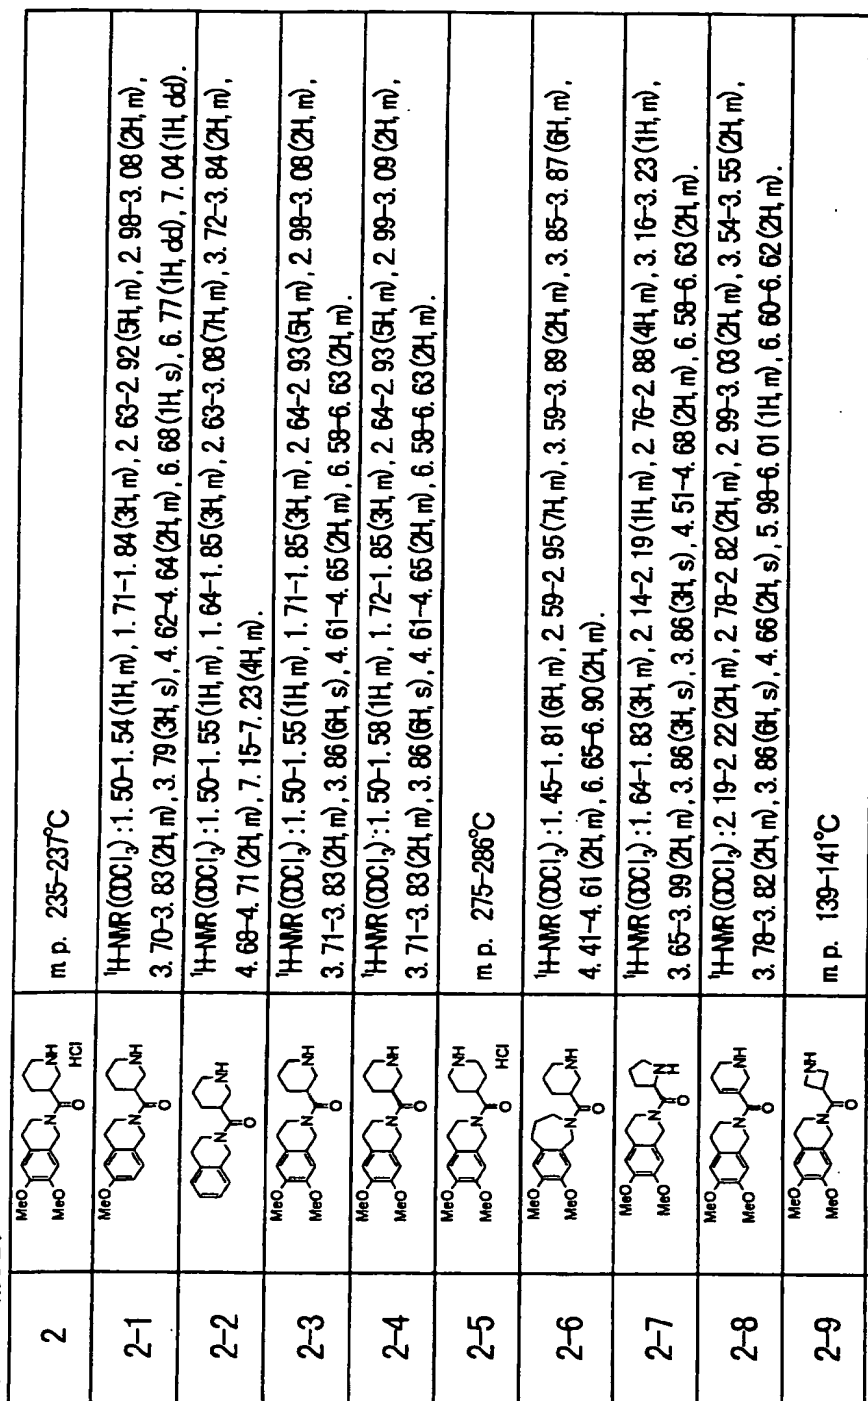 2
MeO
MeO
N
O
NH
HCl
m p. 235-237°C
2-1
MeO
N
O
NH
¹H-NMR(CDCl₃):1.50-1.54(1H, m), 1.71-1.84(3H, m), 2.63-2.92(5H, m), 2.98-3.08(2H, m),
3.70-3.83(2H, m), 3.79(3H, s), 4.62-4.64(2H, m), 6.68(1H, s), 6.77(1H, dd), 7.04(1H, dd).
2-2
N
O
NH
¹H-NMR(CDCl₃):1.50-1.55(1H, m), 1.64-1.85(3H, m), 2.63-3.08(7H, m), 3.72-3.84(2H, m),
4.68-4.71(2H, m), 7.15-7.23(4H, m).
2-3
MeO
MeO
N
O
NH
¹H-NMR(CDCl₃):1.50-1.55(1H, m), 1.71-1.85(3H, m), 2.64-2.93(5H, m), 2.98-3.08(2H, m),
3.71-3.83(2H, m), 3.86(6H, s), 4.61-4.65(2H, m), 6.58-6.63(2H, m).
2-4
MeO
MeO
N
O
NH
¹H-NMR(CDCl₃):1.50-1.58(1H, m), 1.72-1.85(3H, m), 2.64-2.93(5H, m), 2.99-3.09(2H, m),
3.71-3.83(2H, m), 3.86(6H, s), 4.61-4.65(2H, m), 6.58-6.63(2H, m).
2-5
MeO
MeO
N
O
NH
HCl
m p. 275-286°C
2-6
MeO
MeO
N
O
NH
¹H-NMR(CDCl₃):1.45-1.81(6H, m), 2.59-2.95(7H, m), 3.59-3.89(2H, m), 3.85-3.87(6H, m),
4.41-4.61(2H, m), 6.65-6.90(2H, m).
2-7
MeO
MeO
N
O
N
H
¹H-NMR(CDCl₃):1.64-1.83(3H, m), 2.14-2.19(1H, m), 2.76-2.88(4H, m), 3.16-3.23(1H, m),
3.65-3.99(2H, m), 3.86(3H, s), 3.86(3H, s), 4.51-4.68(2H, m), 6.58-6.63(2H, m).
2-8
MeO
MeO
N
O
NH
¹H-NMR(CDCl₃):2.19-2.22(2H, m), 2.78-2.82(2H, m), 2.99-3.03(2H, m), 3.54-3.55(2H, m),
3.78-3.82(2H, m), 3.86(6H, s), 4.66(2H, s), 5.98-6.01(1H, m), 6.60-6.62(2H, m).
2-9
MeO
MeO
N
O
NH
m p. 139-141°C